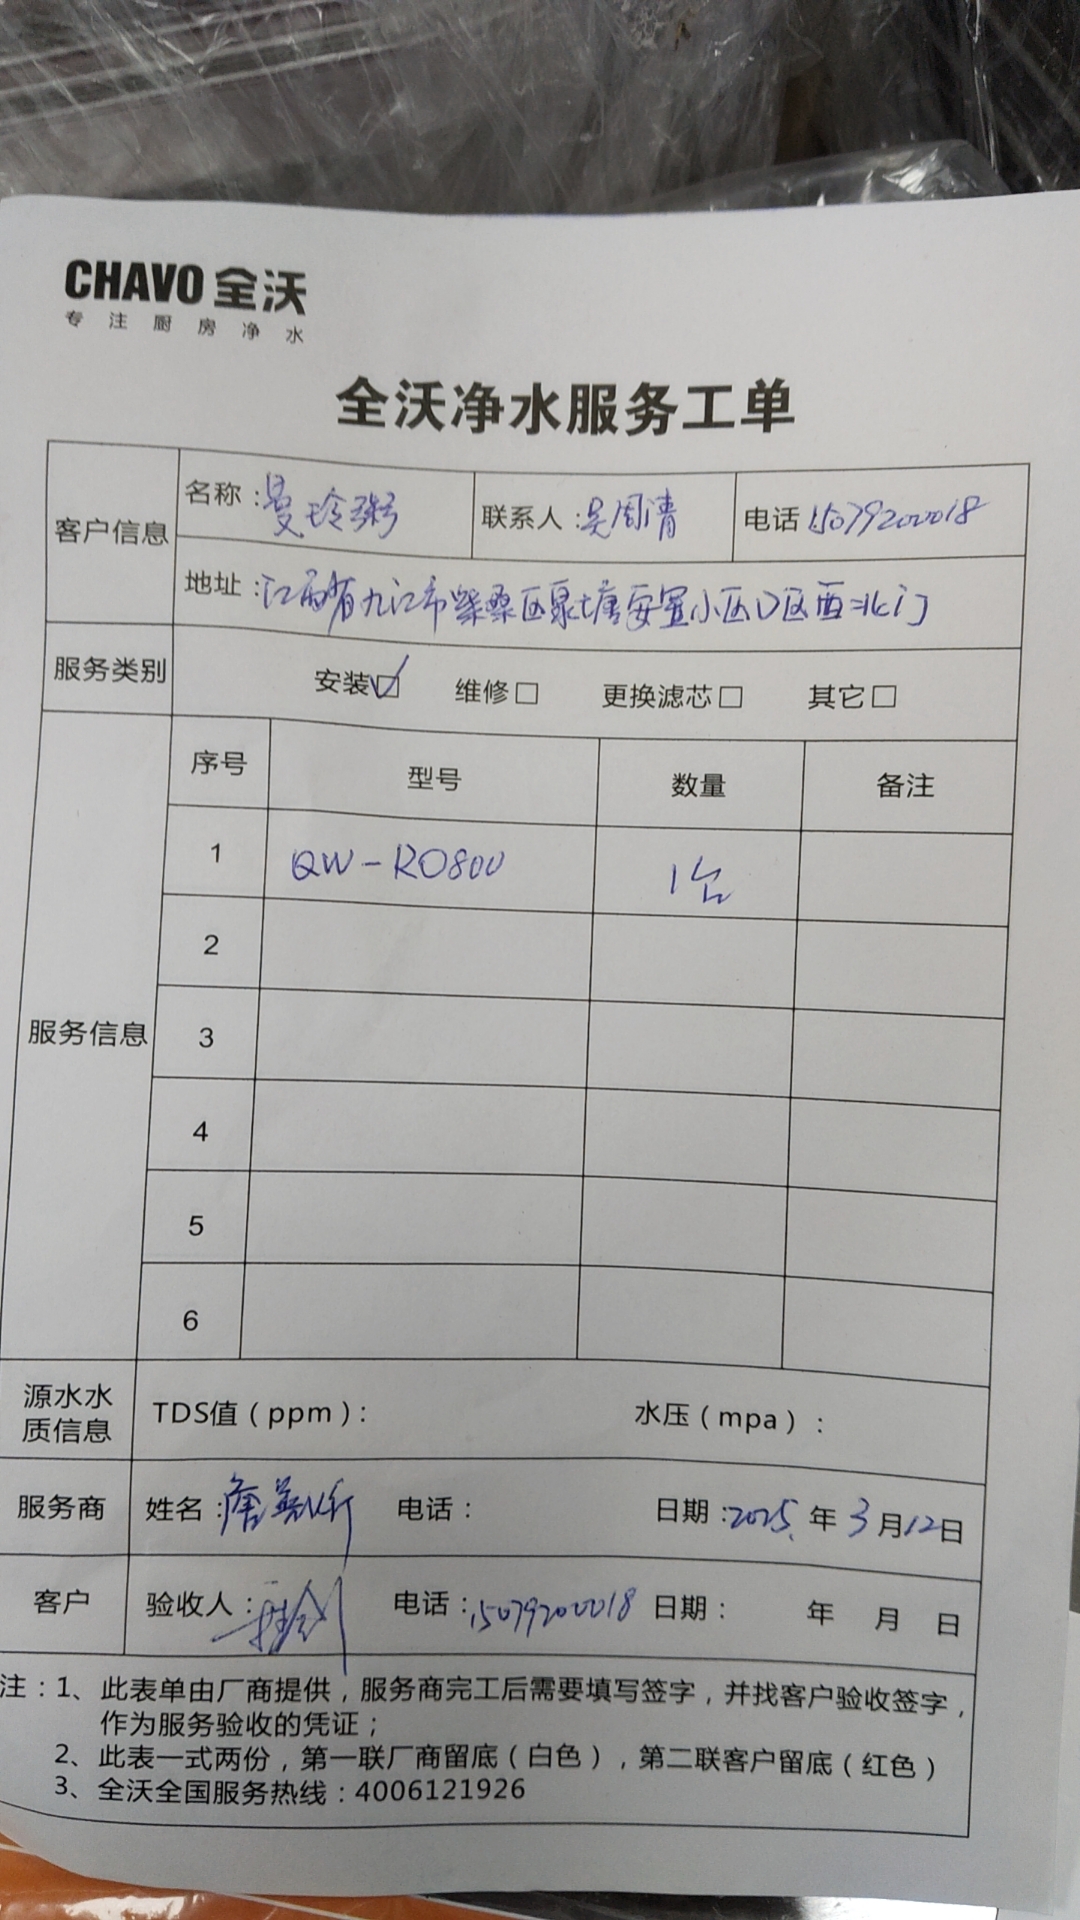 CHAVO 全沃
专注厨房净水
全沃净水服务工单
客户信息
名称：曼玲粥 联系人：吴周清 电话 15079200018
地址：江西省九江市柴桑区泉塘安置小区D区西北门
服务类别 安装☑ 维修□ 更换滤芯□ 其它□
服务信息
序号 型号 数量 备注
1 QW-RO800 1台
2
3
4
5
6
源水水质信息 TDS值（ppm）： 水压（mpa）：
服务商 姓名：詹 电话： 日期：2025年3月12日
客户 验收人： 电话：15079200018 日期： 年 月 日
注：1、此表单由厂商提供，服务商完工后需要填写签字，并找客户验收签字，
作为服务验收的凭证；
2、此表一式两份，第一联厂商留底（白色），第二联客户留底（红色）
3、全沃全国服务热线：4006121926